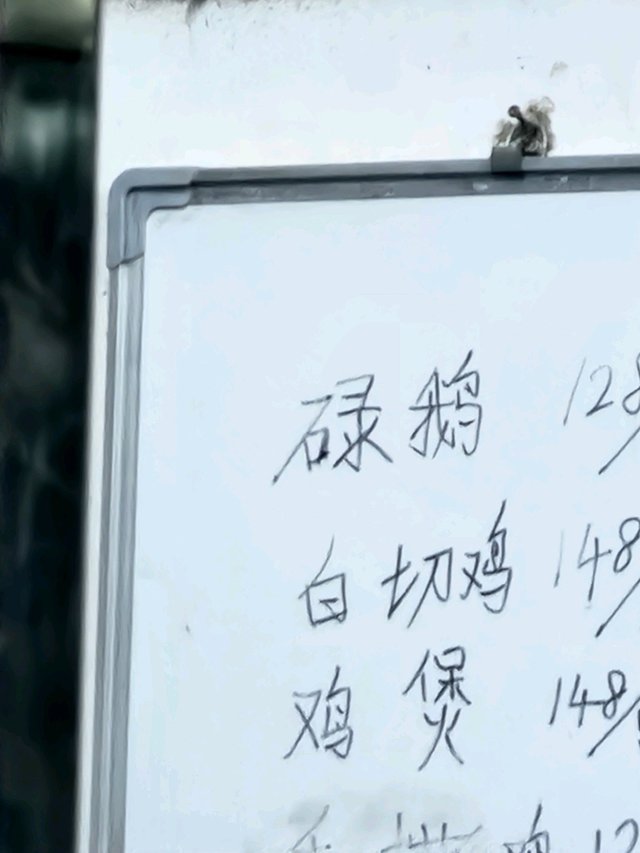 碌鹅 128/
白切鸡 148/
鸡煲 148/